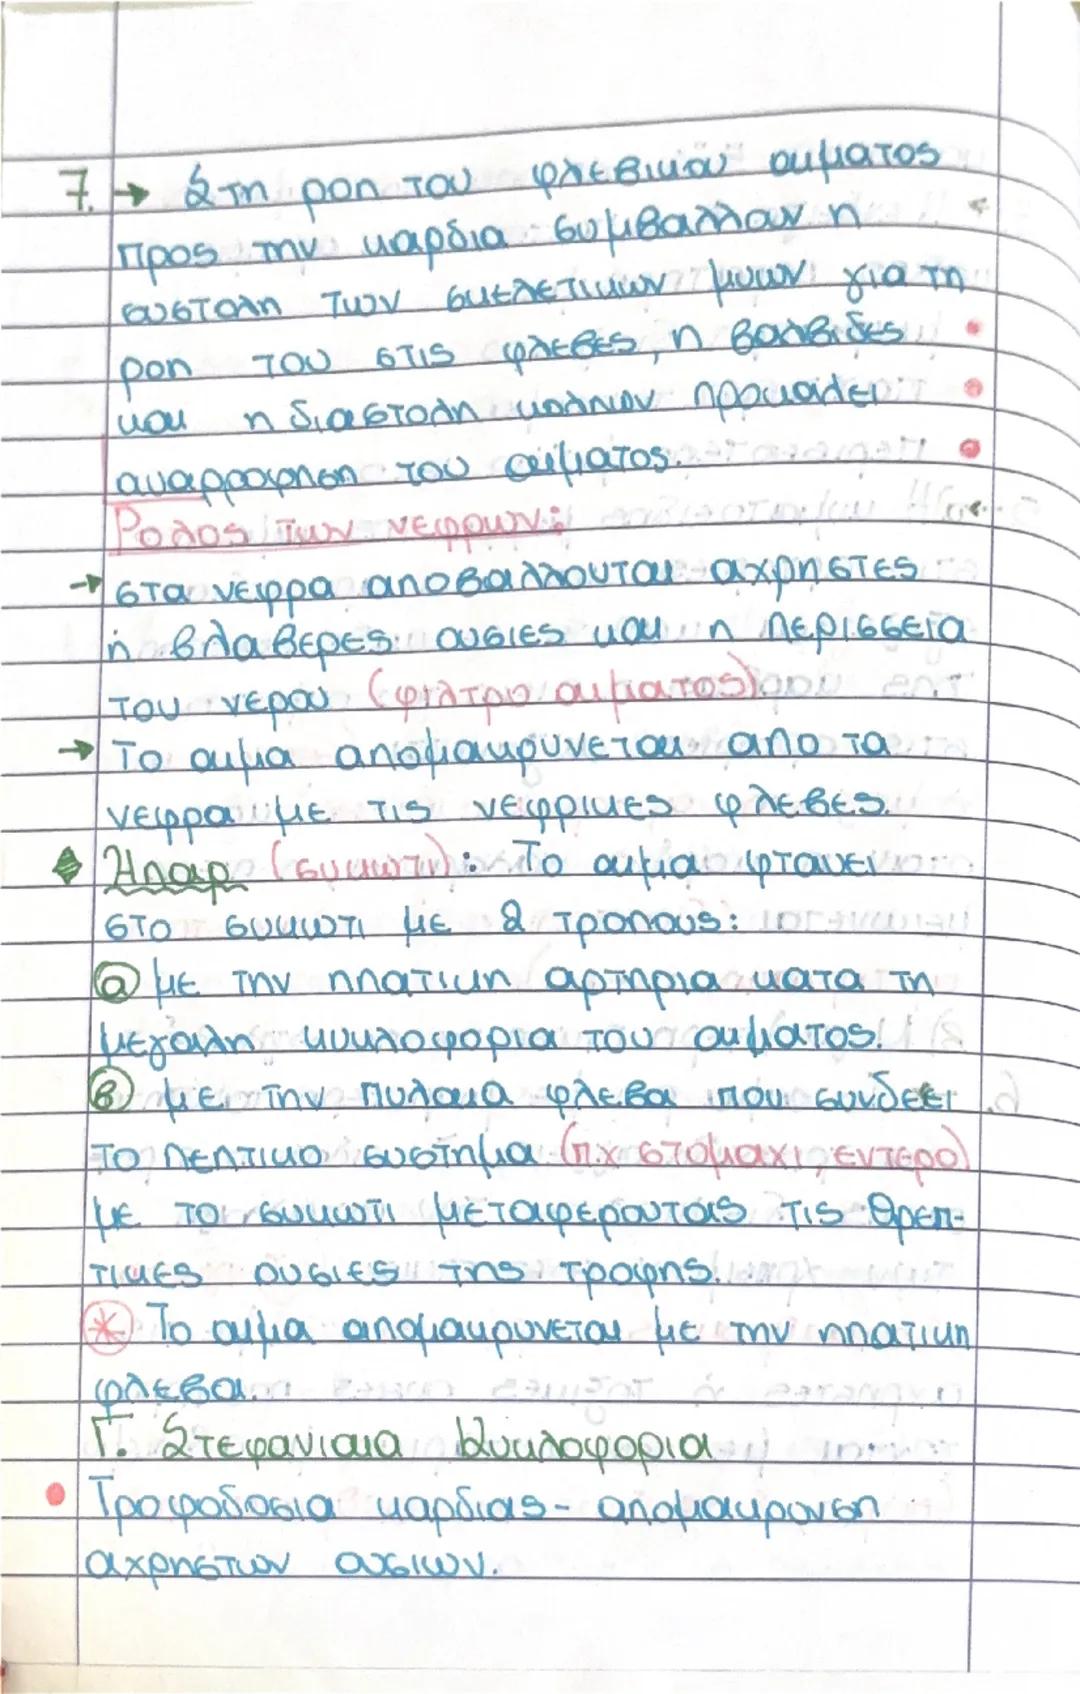 7. → Στη ροη του φλεβικου αιματος
προς την καρδια συμβαλλουν η
συστολη των σκελετικων μυων για τη
ροη του στις φλεβες, η βαλβιδες
και η διαστολη κολπων προκαλει
αναρροφηση του αιματος.
Ρολος των νεφρων:
→ στα νεφρα αποβαλλονται αχρηστες
ή βλαβερες ουσιες και η περισσεια
του νερου (φιλτρο αιματος)
→ Το αιμα απομακρυνεται απο τα
νεφρα με τις νεφρικες φλεβες.
Ηπαρ (συκωτι): Το αιμα φτανει
στο συκωτι με 2 τροπους:
α με την ηπατικη αρτηρια κατα τη
μεγαλη κυκλοφορια του αιματος.
β με την πυλαια φλεβα που συνδεει
το πεπτικο συστημα (π.χ στομαχι, εντερο)
με το συκωτι μεταφεροντας τις θρεπ-
τικες ουσιες της τροφης.
* Το αιμα απομακρυνεται με την ηπατικη
φλεβα.
Γ. Στεφανιαια κυκλοφορια
• Τροφοδοσια καρδιας - απομακρυνση
αχρηστων ουσιων.